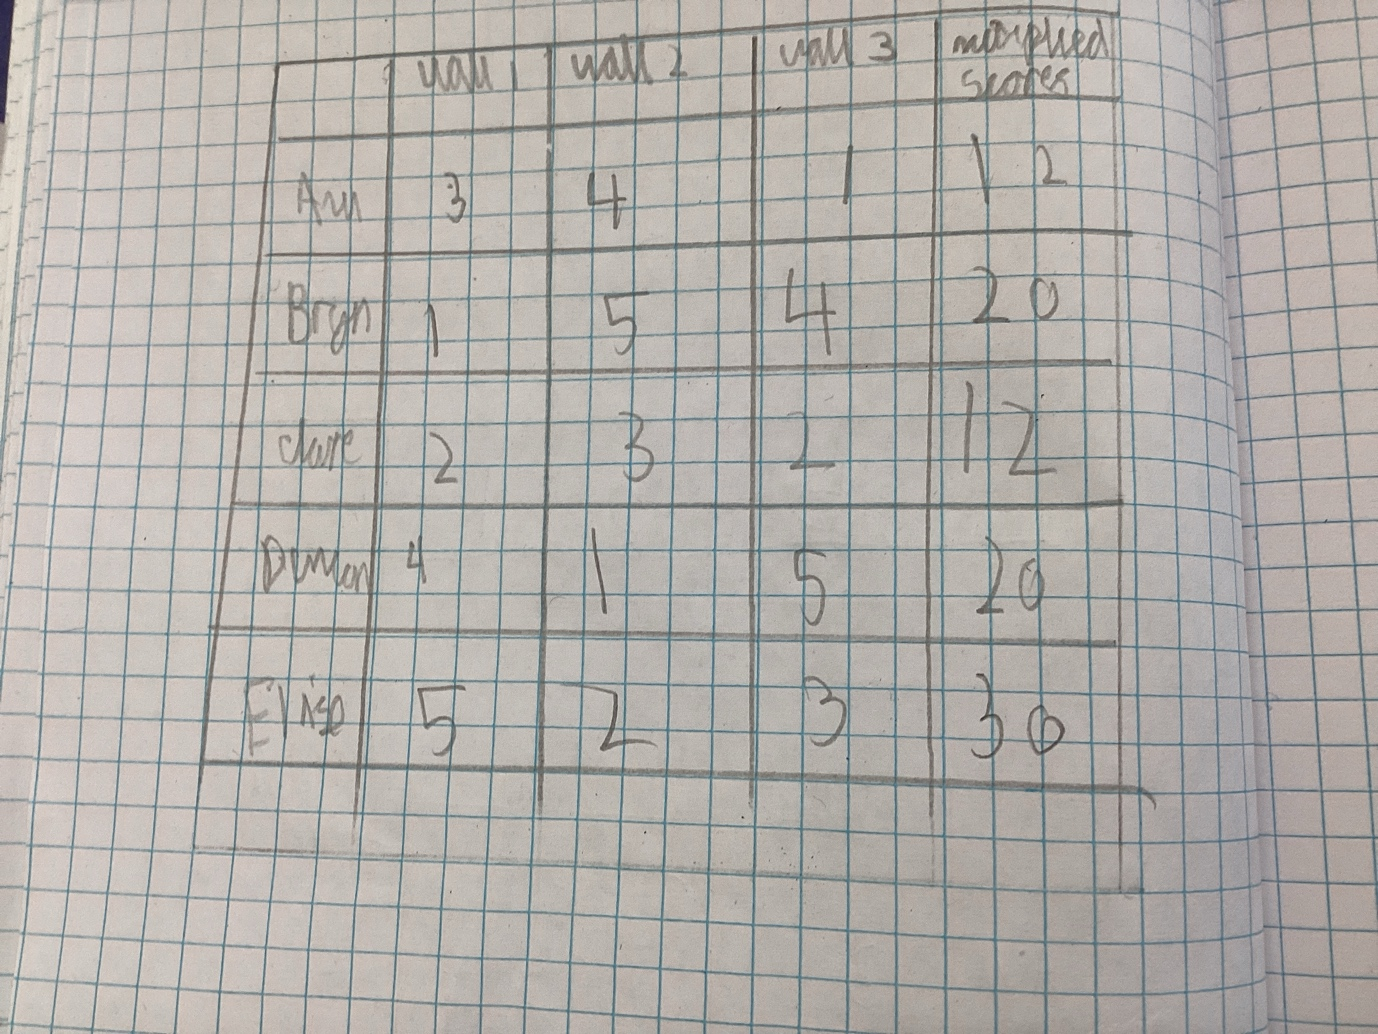 wall 1 wall 2 wall 3 multiplied
scores
Ann 3 4 1 12
Bryn 1 5 4 20
clare 2 3 2 12
4 1 5 20
Elise 5 2 3 30